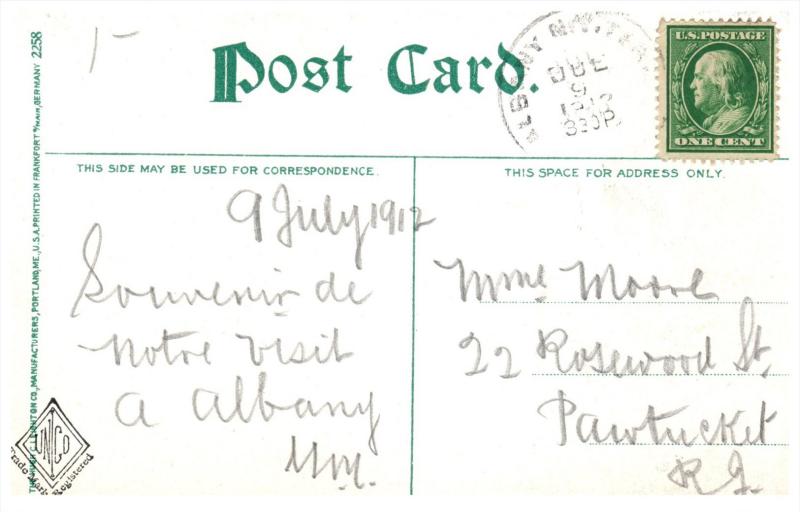 1-
Post Card.
ALBANY N.Y.
JUL
9
1912
330P
U.S. POSTAGE
ONE CENT
THIS SIDE MAY BE USED FOR CORRESPONDENCE.
THIS SPACE FOR ADDRESS ONLY.
9 July 1912
Souvenir de
notre visit
a Albany
Mme Moore
22 Rosewood St.
Pawtucket
R I.
THE HUGH C. LEIGHTON CO., MANUFACTURERS, PORTLAND, ME., U.S.A. PRINTED IN FRANKFORT o/MAIN, GERMANY 2258
Trade Mark Registered